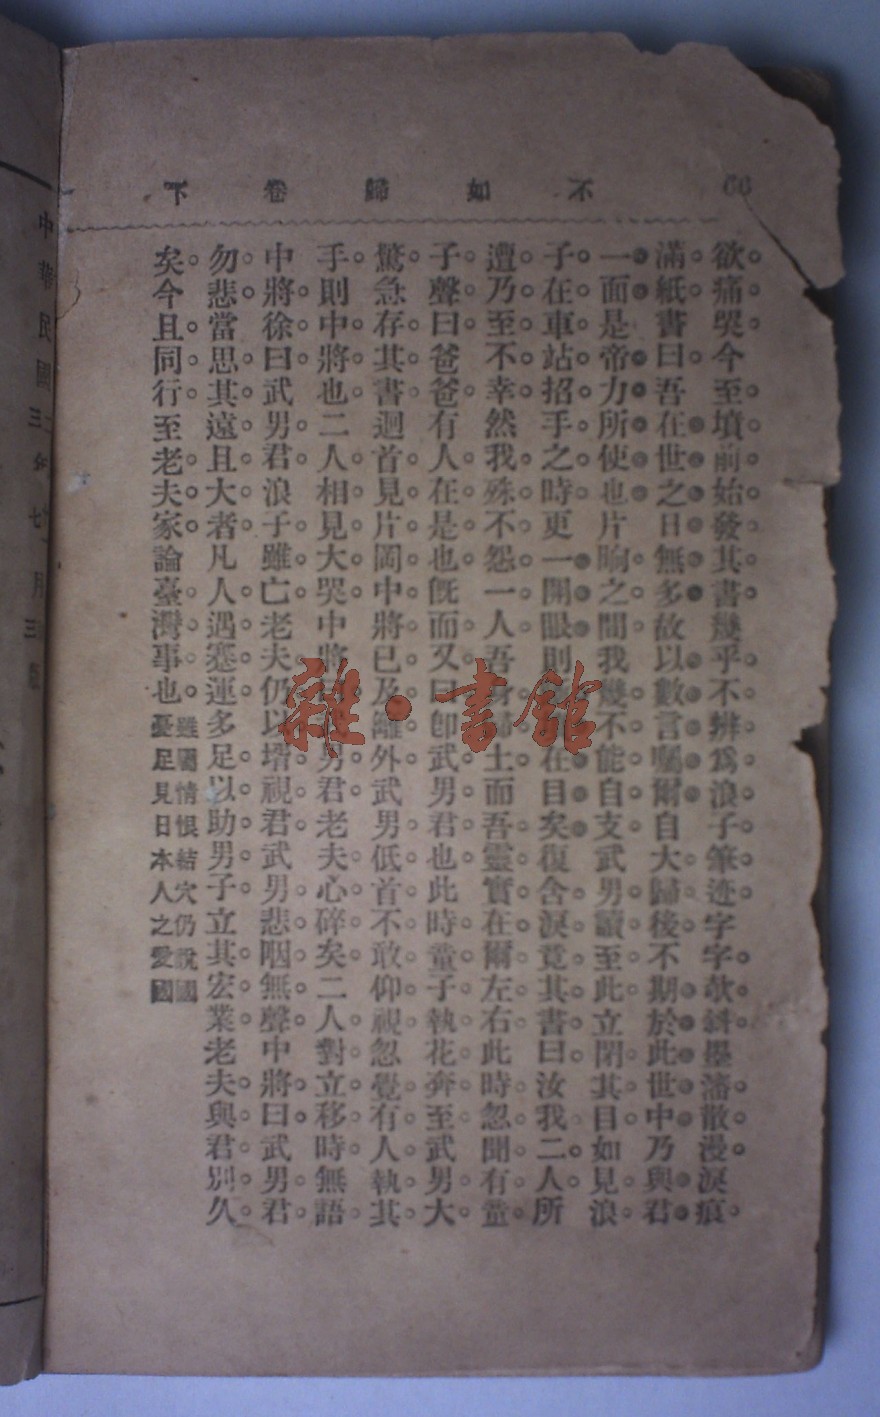 不如歸卷下
66
欲痛哭今至墳前始發其書幾乎不辨爲浪子筆迹字字欹斜墨瀋散漫淚痕
滿紙書曰吾在世之日無多故以數言囑爾自大歸後不期於此世中乃與君
一面是帝力所使也片晌之間我幾不能自支武男讀至此立閉其目如見浪
子在車站招手之時更一開眼則在目矣復含淚竟其書曰汝我二人所
遭乃至不幸然我殊不怨一人吾身土而吾靈實在爾左右此時忽聞有童
子聲曰爸爸有人在是也旣而又曰卽武男君也此時童子執花奔至武男大
驚急存其書迴首見片岡中將已及離外武男低首不敢仰視忽覺有人執其
手則中將也二人相見大哭中將男君老夫心碎矣二人對立移時無語
中將徐曰武男君浪子雖亡老夫仍以壻視君武男悲咽無聲中將曰武男君
勿悲當思其遠且大者凡人遇蹇運多足以助男子立其宏業老夫與君別久
矣今且同行至老夫家論臺灣事也
雖國情恨結穴仍說國
憂足見日本人之愛國
雜·書館
中華民國
年七月